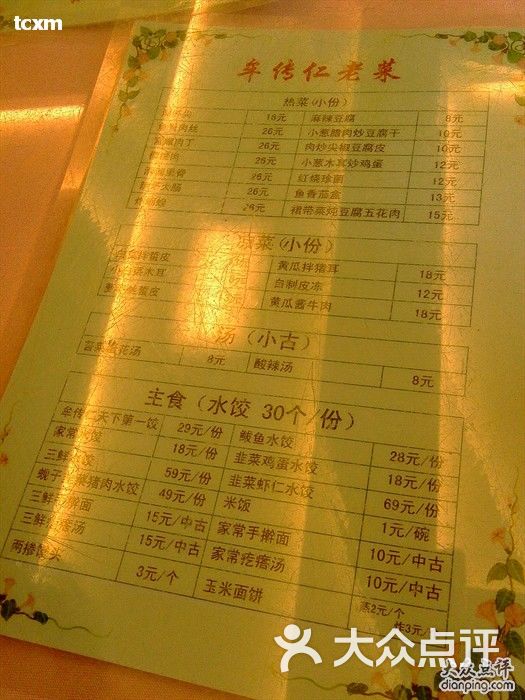 tcxm
牟传仁老菜
热菜(小份)
16元 麻辣豆腐 8元
肉丝 26元 小葱腊肉炒豆腐干 10元
肉丁 26元 肉炒尖椒豆腐皮 10元
26元 小葱木耳炒鸡蛋 12元
里脊 26元 红烧珍菌 12元
火肠 26元 鱼香茄盒 13元
26元 裙带菜炖豆腐五花肉 15元
凉菜(小份)
拌蜇皮 黄瓜拌猪耳 18元
木耳 自制皮冻 12元
蜇皮 黄瓜酱牛肉 18元
汤(小古)
花汤 8元 酸辣汤 8元
主食(水饺 30个/份)
牟传仁天下第一饺 29元/份 鲅鱼水饺 28元/份
家常水饺 18元/份 韭菜鸡蛋水饺 18元/份
三鲜水饺 59元/份 韭菜虾仁水饺 69元/份
蚬子 猪肉水饺 49元/份 米饭 1元/碗
三鲜手擀面 15元/中古 家常手擀面 10元/中古
三鲜疙瘩汤 15元/中古 家常疙瘩汤 10元/中古
两掺馒头 3元/个 玉米面饼 蒸2元/个
炸3元/个
大众点评
大众点评
dianping.com